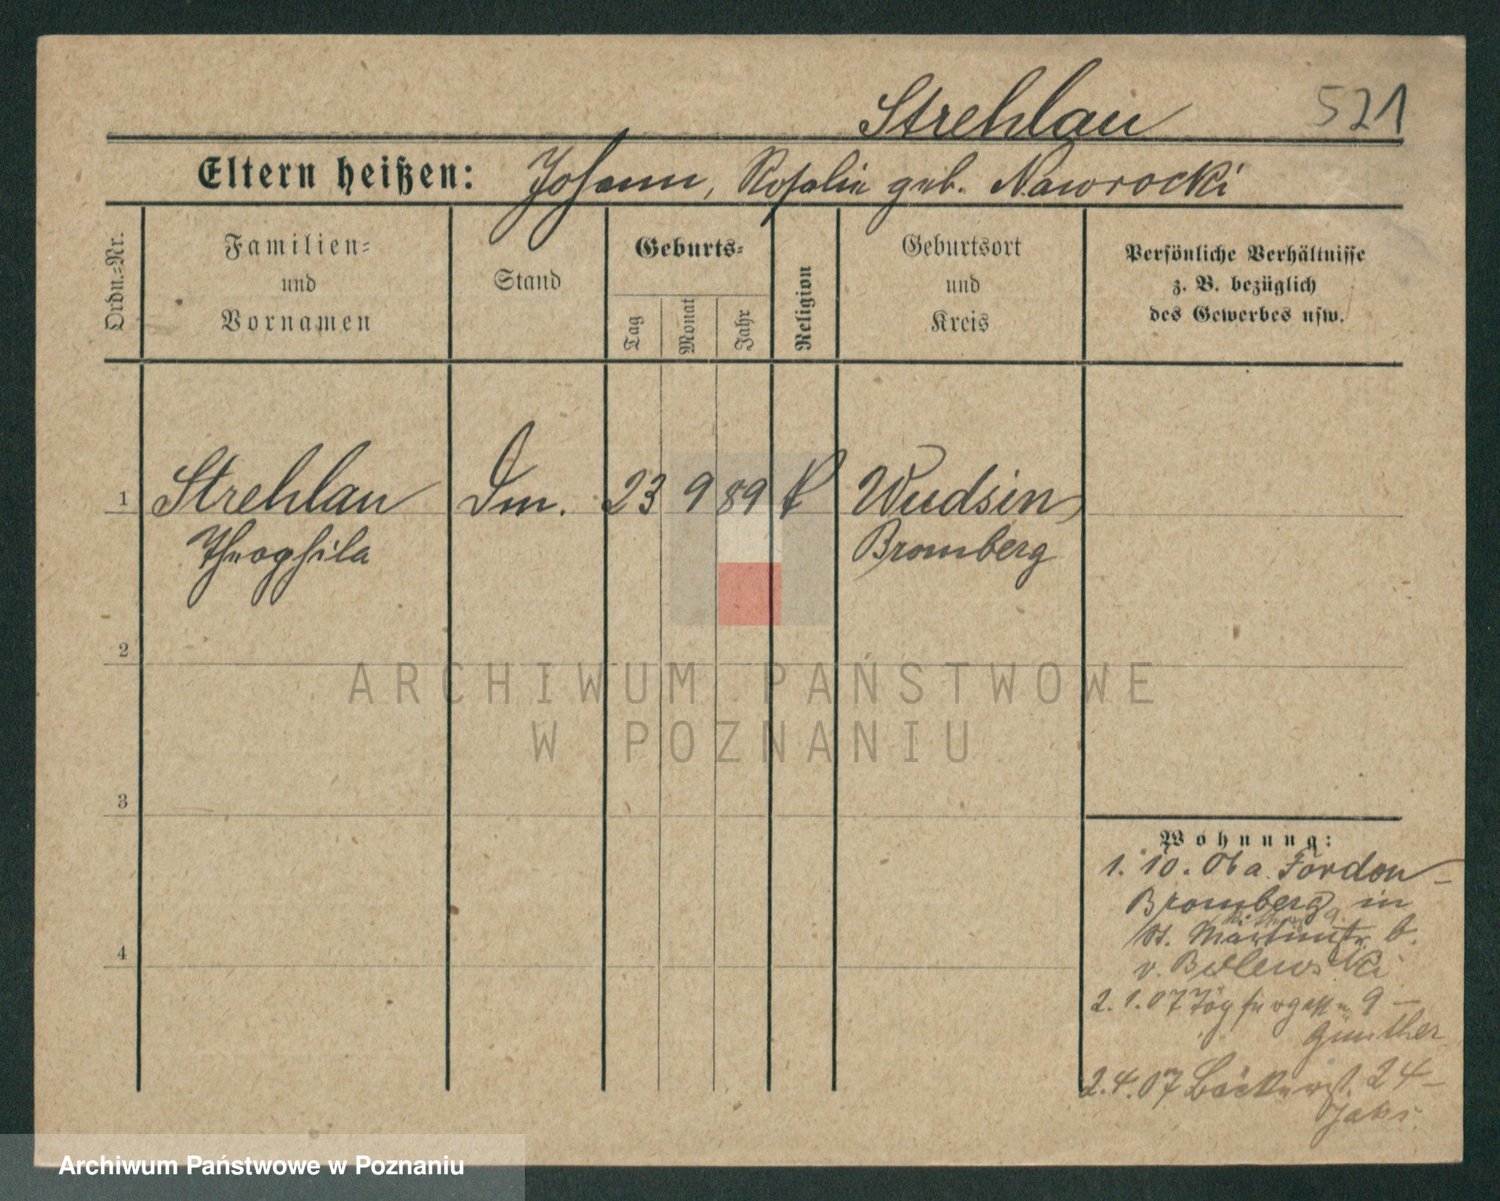 Strehlau 521
Eltern heißen: Johann, Rosalie geb. Nawrocki
Ordn.-Nr.
Familien-
und
Vornamen
Stand
Geburts-
Tag
Monat
Jahr
Religion
Geburtsort
und
Kreis
Persönliche Verhältnisse
z. B. bezüglich
des Gewerbes usw.
1 Strehlau Dm. 23 9 89 k Wudsin
Theophila Bromberg
2
ARCHIWUM PAŃSTWOWE
W POZNANIU
3
4
Wohnung:
1. 10. 06 a. Fordon-
Bromberg in
St. Martinstr. b.
v.
2. 1. 07 Töpfergasse 9 –
Günther
2. 4. 07 Bäckerst. 24 –
Archiwum Państwowe w Poznaniu